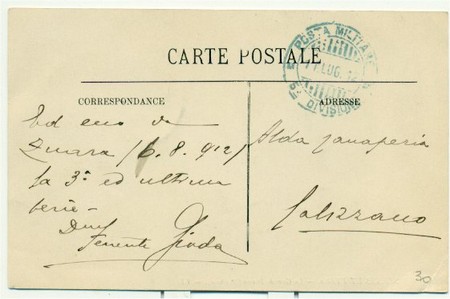 POSTA MILITARE
LUG. 12
DIVISIONE
CARTE POSTALE
CORRESPONDANCE
ADRESSE
Ed eco da
Zuara (6.8.912)
la 3ª ed ultima
serie -
Tenente Gioda
Alda
Calizzano
30